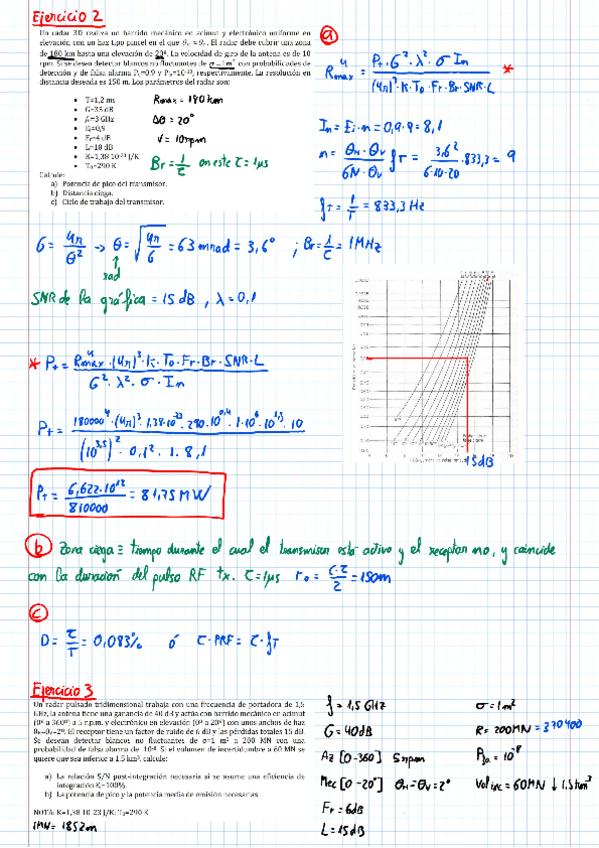 Ejercicio 2
Un radar 3D realiza un barrido mecánico en azimut y electrónico uniforme en
elevación con un haz tipo pencel en el que θH ≈ θV. El radar debe cubrir una zona
de 180 km hasta una elevación de 20º. La velocidad de giro de la antena es de 10
rpm. Si se desea detectar blancos no fluctuantes de σ=1 m² con probabilidades de
detección y de falsa alarma Pd=0,9 y Pfa=10⁻¹⁰, respectivamente. La resolución en
distancia deseada es 150 m. Los parámetros del radar son:
• T=1,2 ms
• G=35 dB
• f=3 GHz
• Ei=0,9
• Fr=4 dB
• L=10 dB
• K=1,38·10⁻²³ J/K
• T₀=290 K
Rmax = 180 km
Δθ = 20°
V = 10 rpm
Br = 1/τ en este τ = 1μs
Calcule:
a) Potencia de pico del transmisor.
b) Distancia ciega.
c) Ciclo de trabajo del transmisor.
a
R⁴max = Pt·G²·λ²·σ·In / (4π)³·K·T₀·Fr·Br·SNR·L *
In = Ei·n = 0,9·9 = 8,1
n = θH·θV / 6N·θv fT = 3,6² / 6·10·20 · 833,3 = 9
fT = 1/T = 833,3 Hz
G = 4π/θ² → θ = √(4π/G) = 63 mrad = 3,6° ; Br = 1/τ = 1MHz
rad
SNR de la gráfica = 15 dB , λ = 0,1
* Pt = R⁴max·(4π)³·K·T₀·Fr·Br·SNR·L / G²·λ²·σ·In
Pt = 180000⁴·(4π)³·1,38·10⁻²³·290·10^0,4·1·10⁶·10^1,5·10 / (10^3,5)²·0,1²·1·8,1
Pt = 6,622·10¹² / 810000 = 81,75 MW
15dB
b Zona ciega ≡ tiempo durante el cual el transmisor está activo y el receptor no, y coincide
con la duración del pulso RF tx. τ = 1μs r₀ = c·τ/2 = 150m
c
D = τ/T = 0,083% ó τ·PRF = τ·fT
Ejercicio 3
Un radar pulsado tridimensional trabaja con una frecuencia de portadora de 1,5
GHz, la antena tiene una ganancia de 40 dB y actúa con barrido mecánico en azimut
(0º a 360º) a 5 r.p.m. y electrónico en elevación (0º a 20º) con unos anchos de haz
θH=θV=2º. El receptor tiene un factor de ruido de 6 dB y las pérdidas totales 15 dB.
Se desean detectar blancos no fluctuantes de σ=1 m² a 200 MN con una
probabilidad de falsa alarma de 10⁻⁸. Si el volumen de incertidumbre a 60 MN se
quiere que sea inferior a 1.5 km³, calcule:
a) La relación S/N post-integración necesaria si se asume una eficiencia de
integración K=100%.
b) La potencia de pico y la potencia media de emisión necesarias.
NOTA: K=1,38 10-23 J/K; T₀=290 K
1MN = 1852m
f = 1,5 GHz
G = 40dB
Az [0-360] 5rpm
Mec [0-20°] θH = θV = 2°
Fr = 6dB
L = 15dB
σ = 1m²
R = 200MN = 370400
Pfa = 10⁻⁸
Vol inc = 60MN ↓ 1,5km³